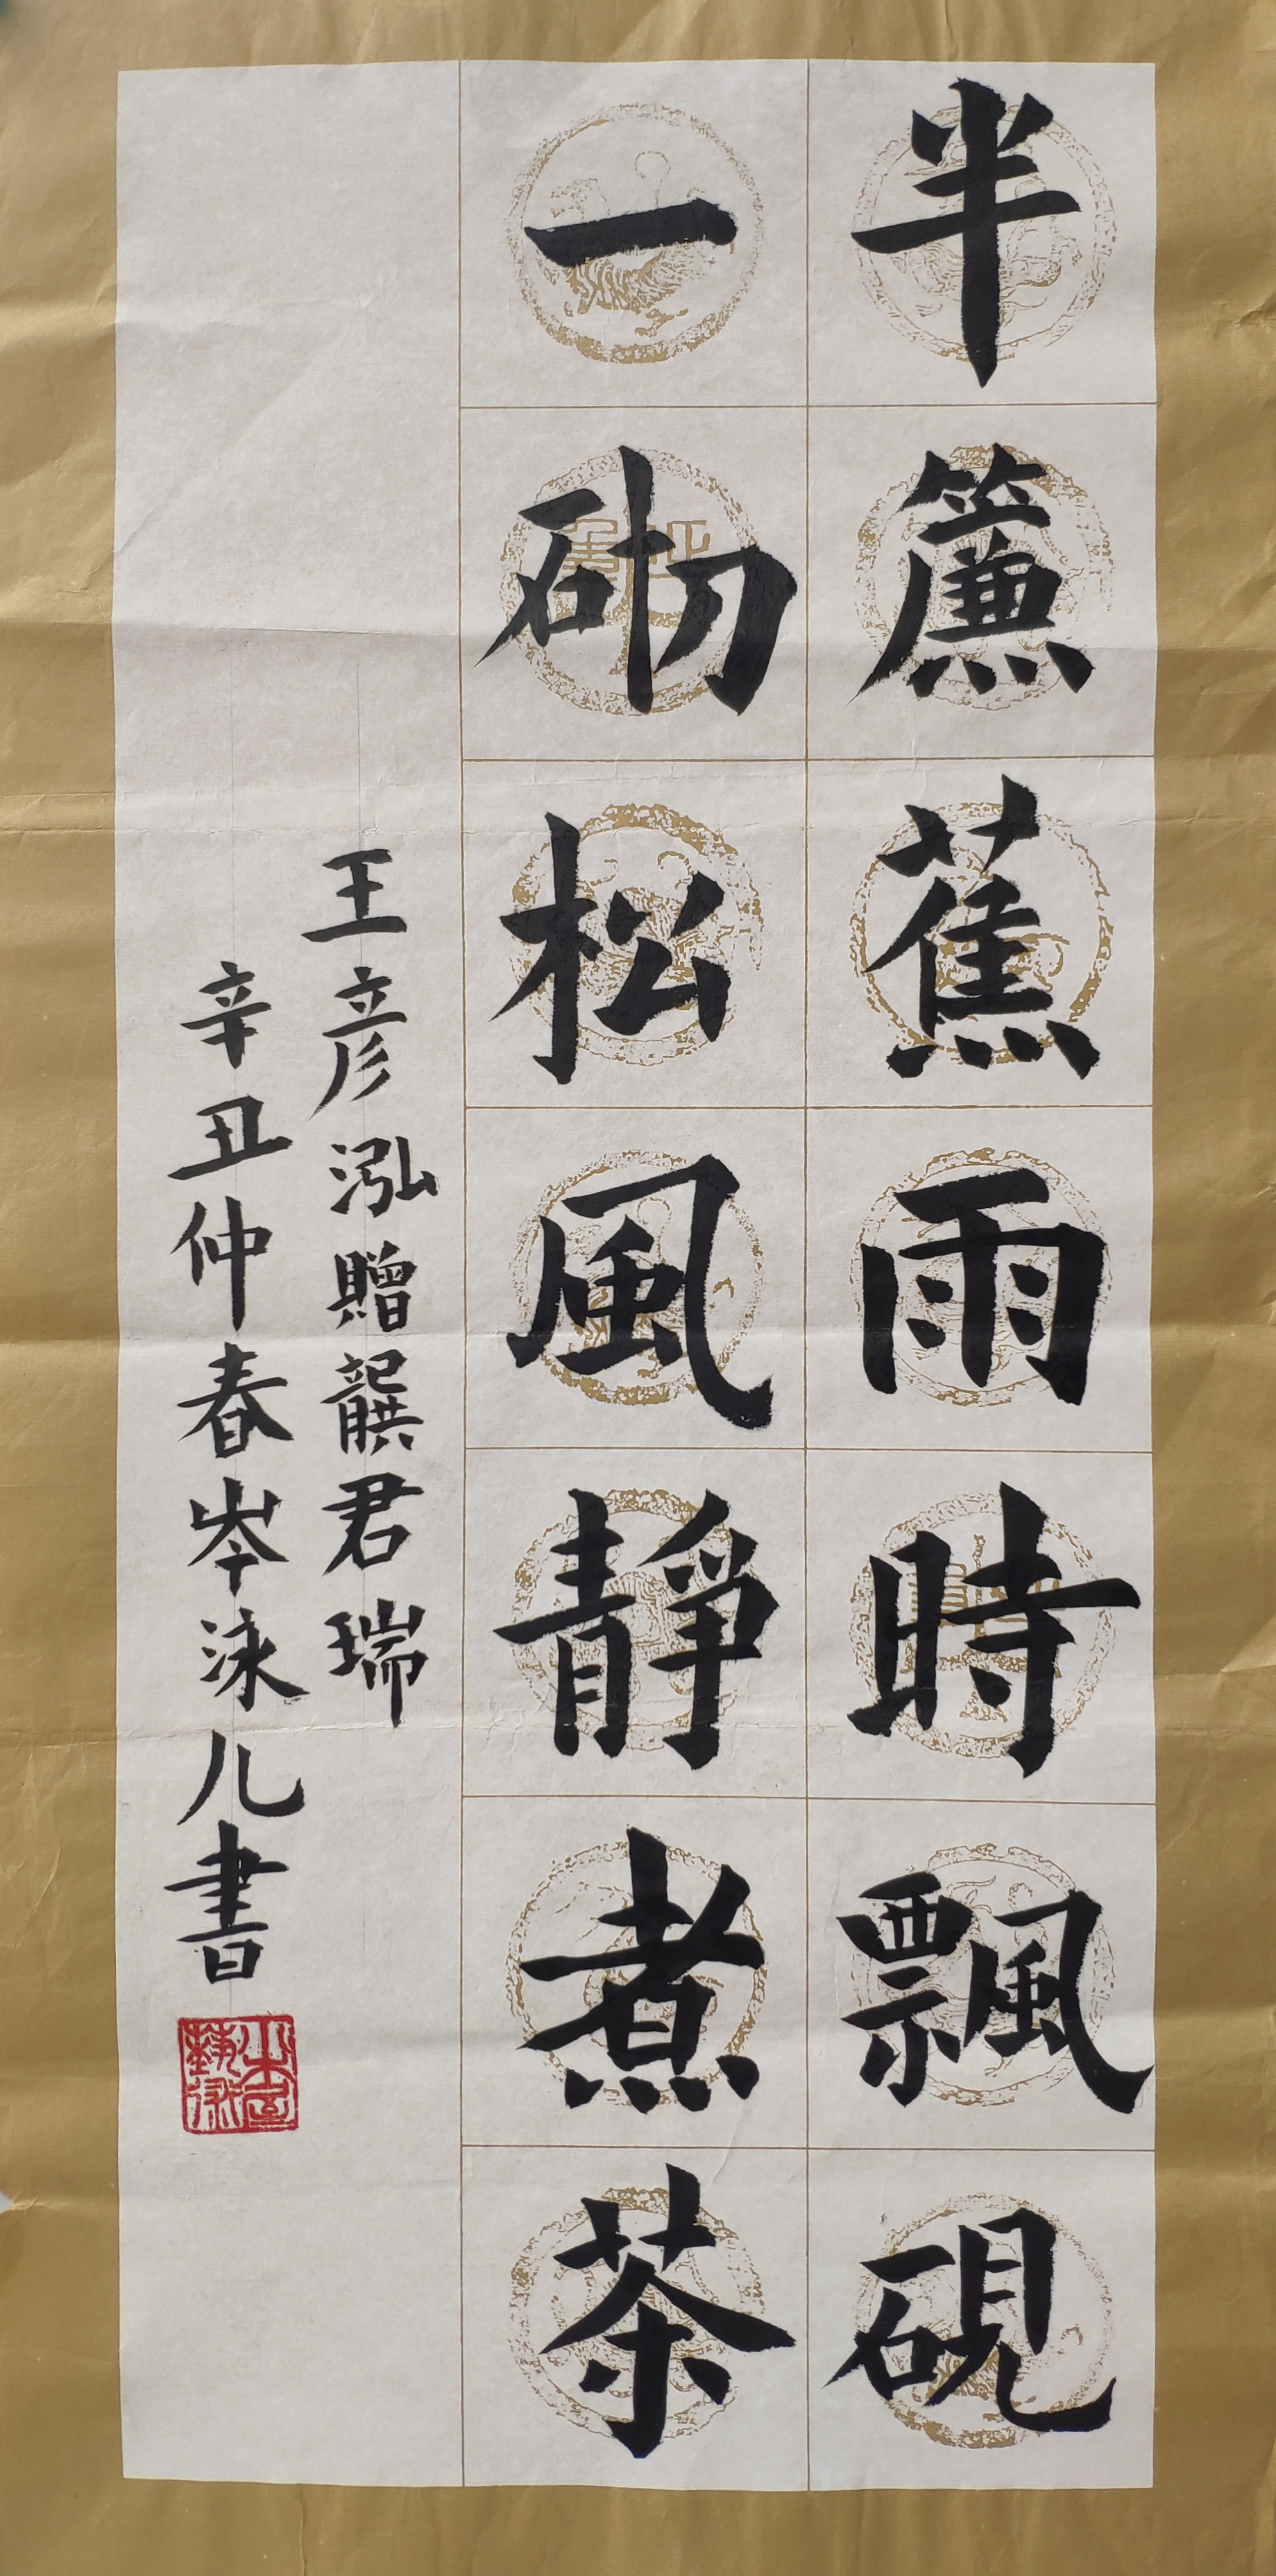 半簾蕉雨時飄硯
一砌松風靜煮茶
王彦泓贈龔君瑞
辛丑仲春岑泳儿書